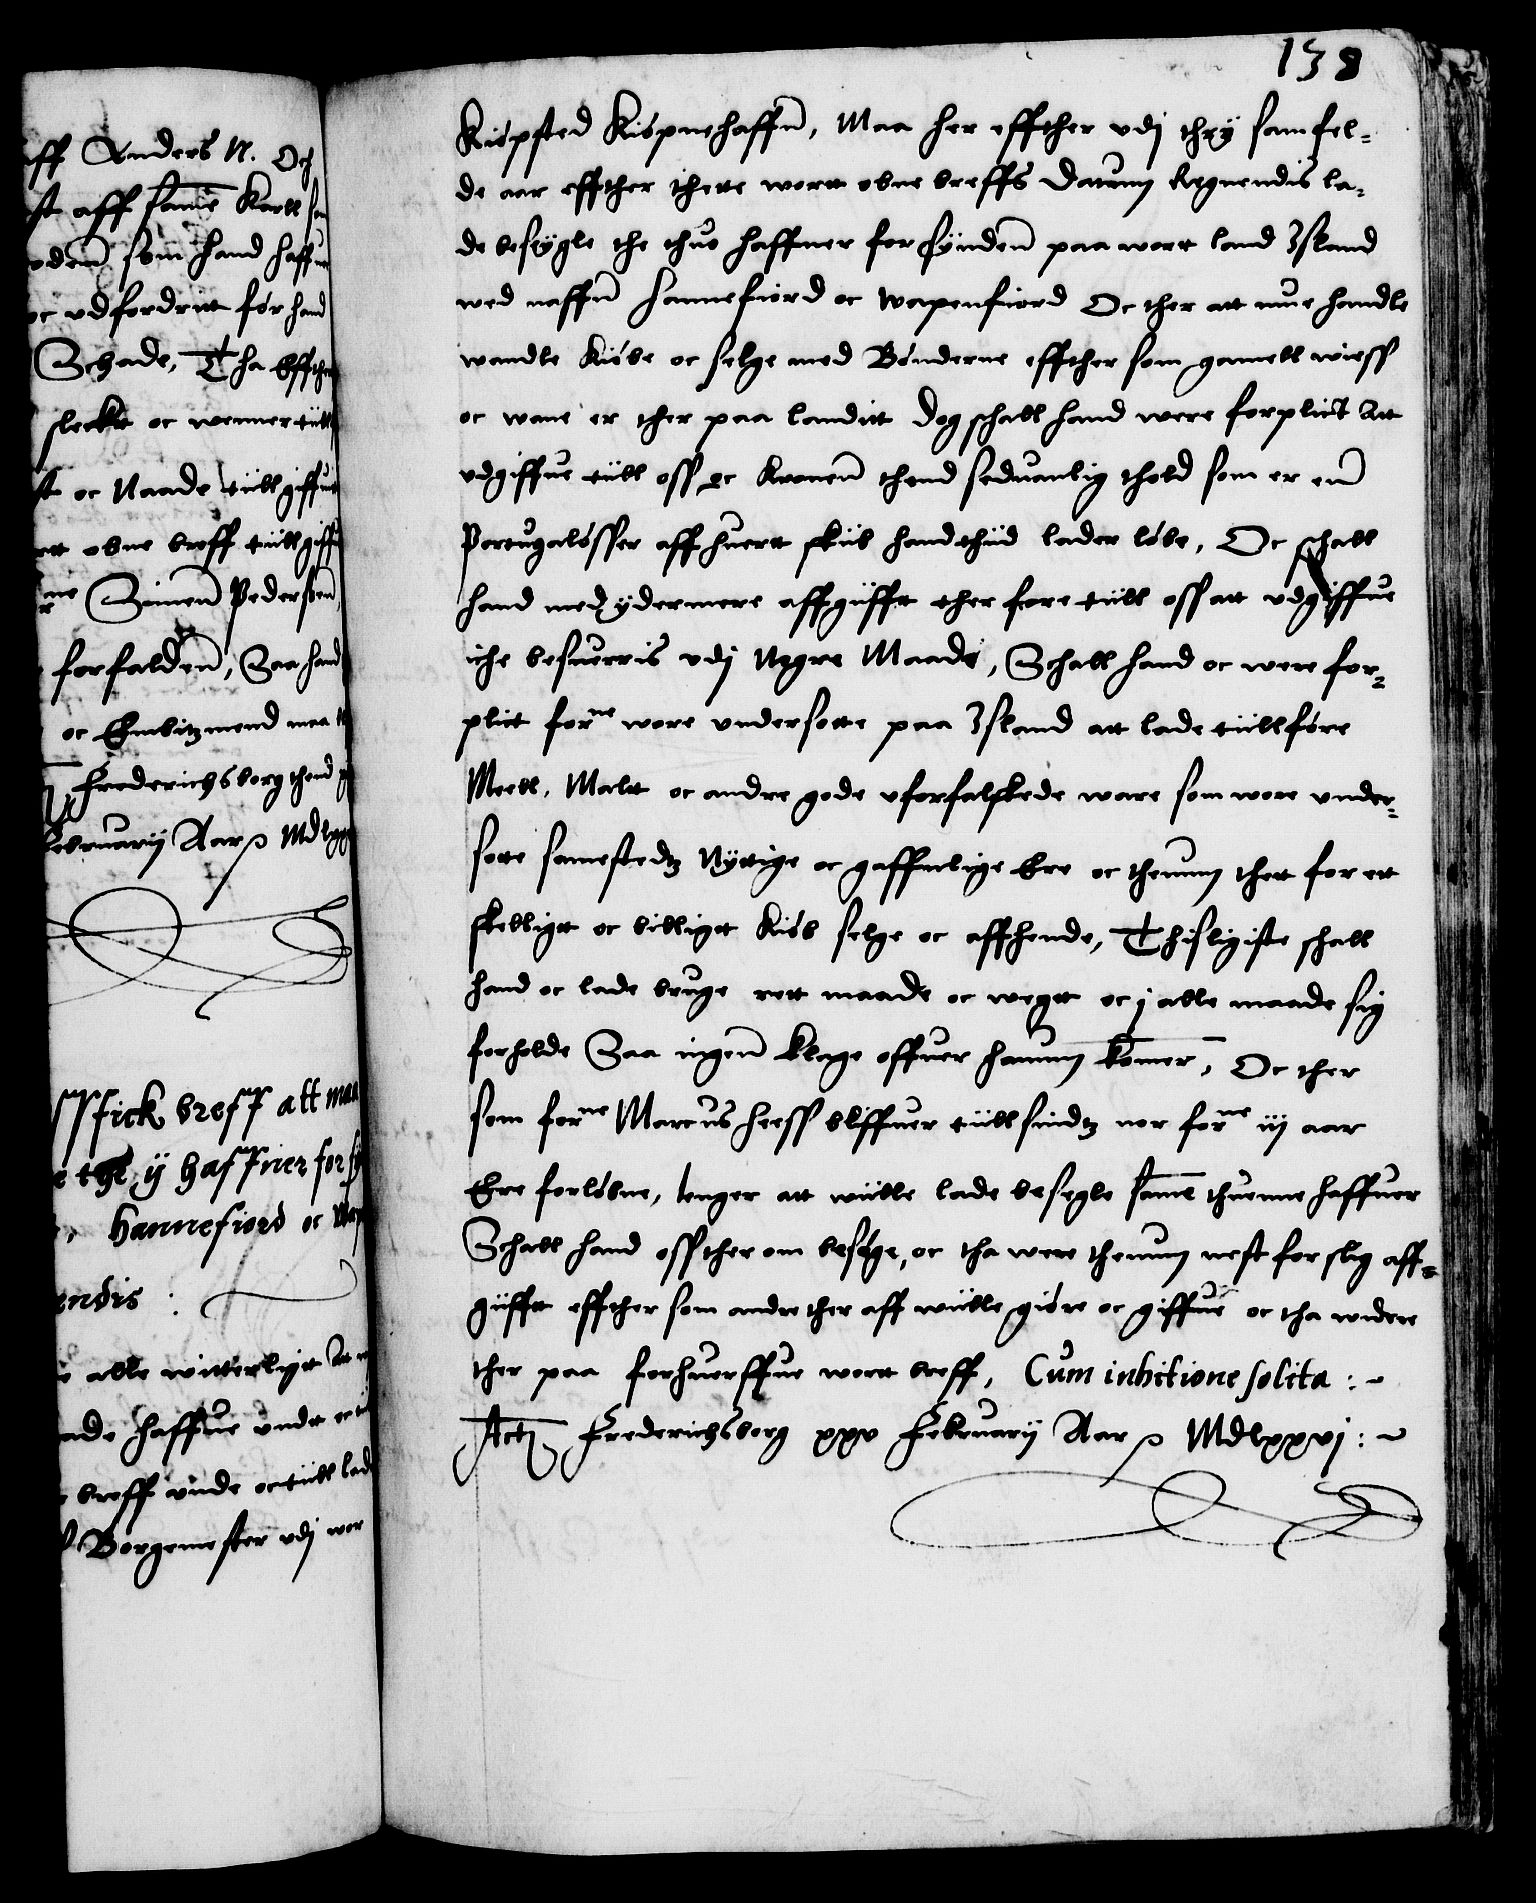 138
Kiøpsted Kiøpnehaffn, Maa her effther vdj thrÿ samfel-
de aar effther thette wortt obne breffs datum Regnendis la-
de besøgle the thuo haffner for sÿnden paa wort land Island
wed naffn hannefiord oc wapenfiord Oc ther att mue handle
wandle Kiøbe oc selge med Bønderne effther som gamell wiess
oc wane er ther paa landitt dog schall hand were forplict Att
vdgiffue tiill oss oc Kronen thend seduanlig thold som er en
Portugaløsser aff huertt skiib hand thiid lader løbe, Oc schall
hand med ydermere affgiifft ther fore tiill oss att vdgiffue
iche besuerris vdj Nogre Maade, Schall hand oc were for-
plict forne wore vndersotte paa Island att lade tiillføre
Meell, Maltt oc andre gode vforfalskede ware som wore vnder-
sotte samestedtz Nÿttige oc gaffnlige Ere oc thennum thet for ett
skelligtt oc billigtt Kiøb selge oc affhende, Thisligiste schall
hand oc lade bruge rett maade oc wegtt oc j alle maade sig
forholde Saa ingen klage offuer hannum komer, Oc ther
som forne Marcus hess bliffuer tiill sindtz nor forne iij aar
Ere forløbne, lenger att wiille lade besegle same thuenne haffner
Schall hand oss ther om besøge, oc tha were thennum nest for slig aff-
giifft effther som andre ther aff wiille giøre oc giffue oc tha widere
ther paa forhuerffue wortt breff, Cum inhibitione solita :~
Actum Frederichsborg xxv Februarij Aar p Mdlxxvj :~
aff Anders N. Och
st aff same Karll
som hand haffue
oc vdfordritt for hand
Schade, Tha Effther
slecht oc wenner tiill
st oc Naade tiillgiffue
obne breff tiillgiffue
Simen Pedersen
forfalden, Saa hand
oc Embitzmend maa
Frederichsborg thend
Februarij Aar p Mdlxx
fick breff att maa
the ij haffner for
hannefiord oc
endis :
alle witterligtt Att
haffue vndt
breff vnde oc tiill lade
Borgemester vdj wor